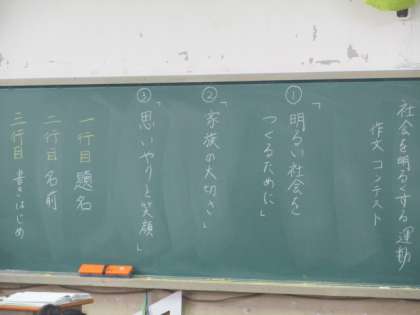 社会を明るくする運動
作文コンテスト
①「明るい社会を
つくるために」
②「家族の大切さ」
③「思いやりと笑顔」
一行目 題名
二行目 名前
三行目 書きはじめ